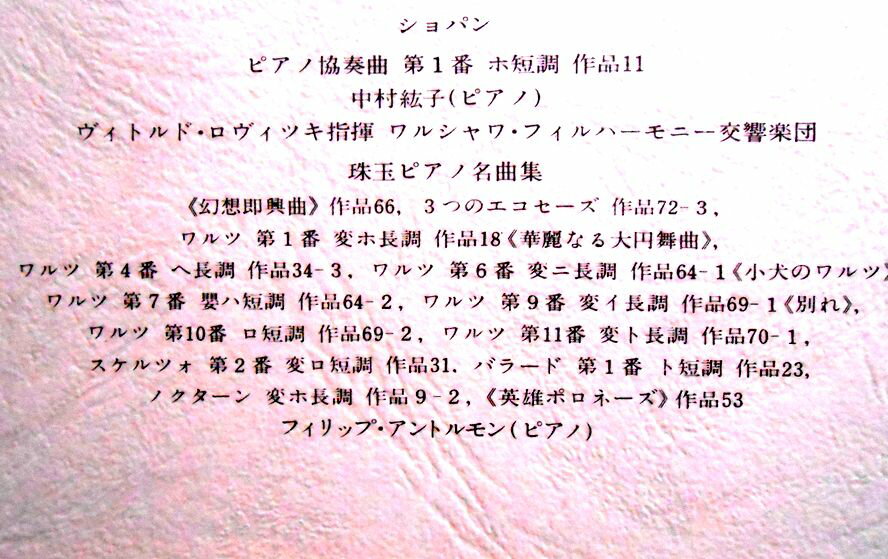 ショパン
ピアノ協奏曲 第1番 ホ短調 作品11
中村紘子(ピアノ)
ヴィトルド・ロヴィツキ指揮 ワルシャワ・フィルハーモニー交響楽団
珠玉ピアノ名曲集
《幻想即興曲》作品66, 3つのエコセーズ 作品72-3,
ワルツ 第1番 変ホ長調 作品18《華麗なる大円舞曲》,
ワルツ 第4番 ヘ長調 作品34-3, ワルツ 第6番 変ニ長調 作品64-1《小犬のワルツ》
ワルツ 第7番 嬰ハ短調 作品64-2, ワルツ 第9番 変イ長調 作品69-1《別れ》,
ワルツ 第10番 ロ短調 作品69-2, ワルツ 第11番 変ト長調 作品70-1,
スケルツォ 第2番 変ロ短調 作品31. バラード 第1番 ト短調 作品23,
ノクターン 変ホ長調 作品9-2,《英雄ポロネーズ》作品53
フィリップ・アントルモン(ピアノ)